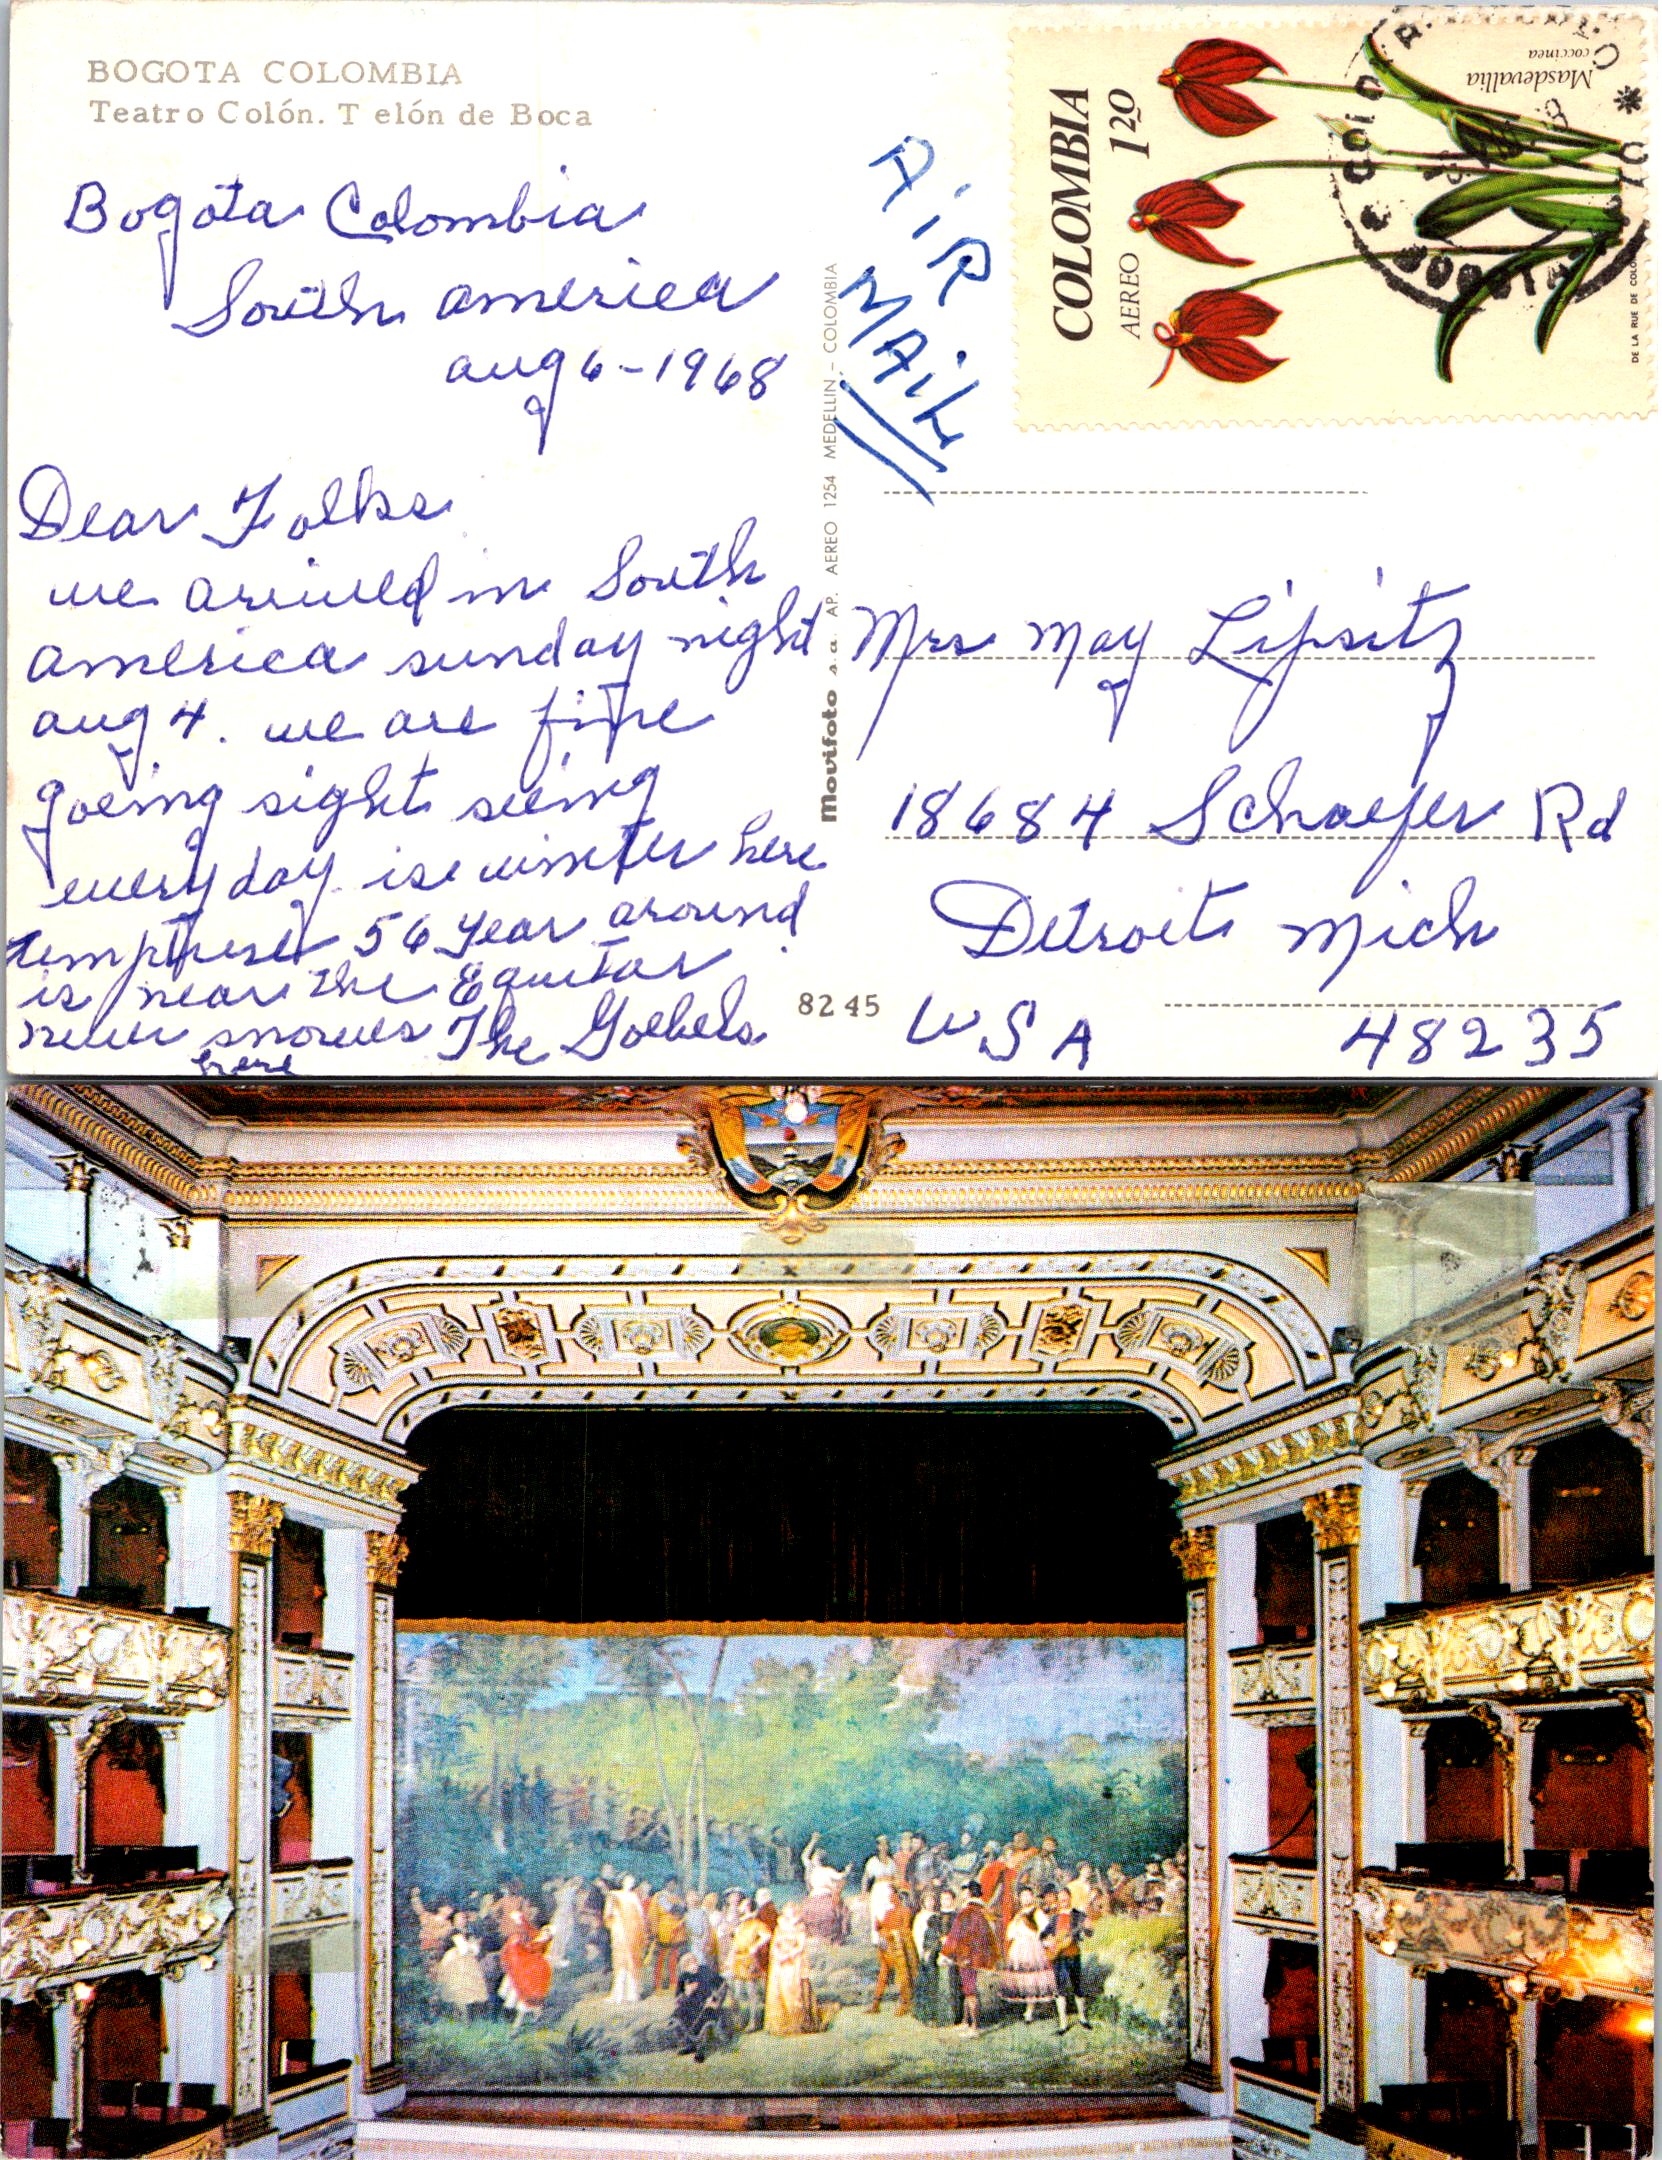 BOGOTA COLOMBIA
Teatro Colón. T elón de Boca
Bogota Colombia
South america
aug 6-1968
Dear Folks
we arrived in South
america sunday night
aug 4. we are fine
going sight seeing
every day. is winter here
56 year around
is near the Equitor
never snowes The Goebels
here
AiR
MAiL
COLOMBIA
AEREO 1 20
Masdevallia
coccinea
DE LA RUE DE COLO
BOGOTA
Movifoto s.a. AP. AEREO 1254 MEDELLIN - COLOMBIA
Mrs May Lipsitz
18684 Schaefer Rd
Detroit Mich
USA 48235
8245